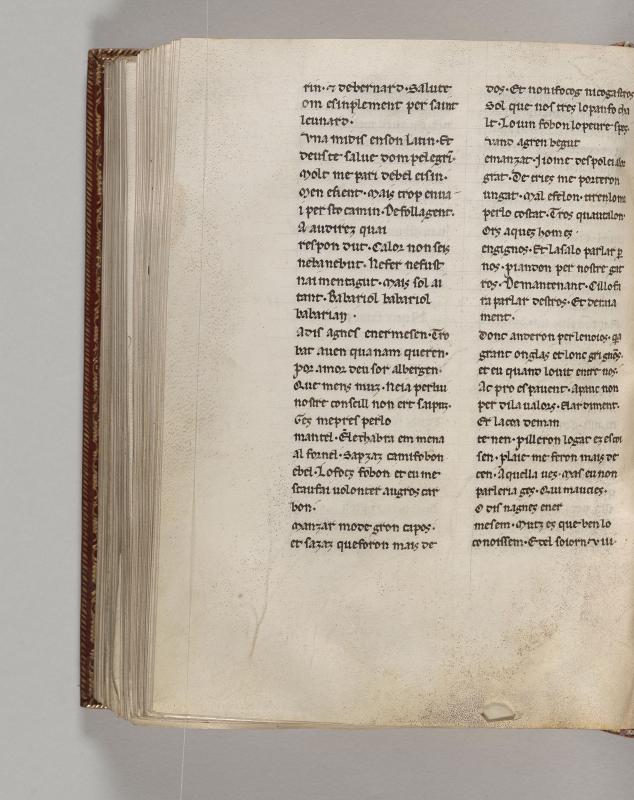 rin·⁊ debernard·Salute
om esinplement per saint
leunard·
Vna midis enson latin·Et
deus te salue dom pelegri·
Molt me pari debel eisin·
Men esient·Mais trop enua
i per sto camin·De follagent·
A audirez quai
respon dut·Calor non seis
nebanebut·Nefer nefust
nai mentagut·mais sol ai
tant·Babariol babariol
babarian·
Adis agnes enermesen·Tro
bat auen quanam queren·
por amor deu sor albergen·
Que mens muz·Neia perlui
nostre conseill non ert saipuz·
Gez mepres perlo
mantel·Elethabra em mena
al fornel·Sapzaz camifobon
ebel·Lofocs fobon et eu me
scaufai uolonter augros car
bon·
Manzar mode gron capos·
et sazaz queforon mais de
dos·Et non ifocog nicogastros
Sol que nos tres lo pan fo cha
lt·Lo uin fobon lo peure spes·
emanzat·
grat·De tries me porteron
ungat·Mal efelon·
perlo costat·Tros quaualon·
Ors aquez homes·
engignos·Et lasalo parlar per
nos·piandon per nostre gat
ros·De mantenant·
ra parlar destros·Et denua
ment·
Donc anderon perlenoios·
grant onglas et lonc grignos·
et eu quand louit entre nos·
Ac pro espauent·Apauc non
per di la ualors·Elardiment·
Et lacoa deman
te nen·pilleron logat ez escoi
sen·plaie me feron mais de
cen·Aquella ues·Mas eu non
parleria ges·Qui maucies·
O dis nagnes ener
mesem·Mutz es que ben lo
conoissem·Etel soiorn·VIII·